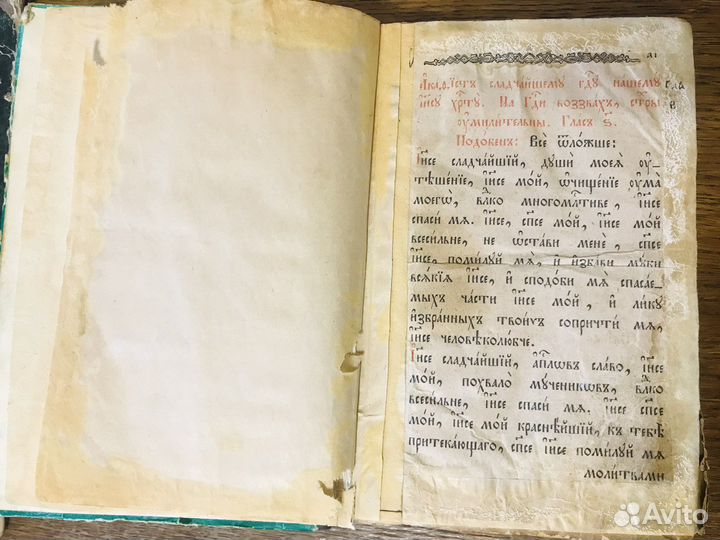 Акаѳїстъ сладчайшему гдⷭ҇у нашему
і҆и҃су хрⷭ҇ту. На Гдⷭ҇и воззвахъ, стⷯры
ѹ҆милительны. Гласъ ѕ҃.
Подобенъ: Всѐ ѿло́жше:
І҆и҃се сладча́йшїй, дꙋшѝ моеѧ̀ ѹ҆–
тѣше́нїе, і҆и҃се мо́й, ѡ҆чище́нїе ѹ҆ма̀
моегѡ̀, влⷣко многомлⷭ҇тиве, і҆и҃се
спаси́ мѧ. І҆и҃се, сп҃се мо́й, і҆и҃се мо́й
всеси́льне, не ѡ҆ста́ви менѐ, сп҃се
і҆и҃се, поми́лꙋй мѧ̀, и҆ и҆зба́ви мꙋки
всѧ́кїѧ і҆и҃се, и҆ сподо́би мѧ̀ спаса́е–
мыхъ ча́сти і҆и҃се мо́й, и҆ ли́кꙋ
и҆збра́нныхъ твои́хъ сопричти́ мѧ,
і҆и҃се человѣколю́бче.
І҆и҃се сладча́йшїй, а҆пⷭ҇лѡвъ сла́во, і҆и҃се
мо́й, похвало̀ мꙋ́ченикѡвъ, влⷣко
всеси́льне, і҆и҃се спаси́ мѧ. і҆и҃се сп҃се
мо́й, і҆и҃се мо́й краснѣ́йшїй, къ тебѣ̀
притека́ющаго, сп҃се і҆и҃се поми́лꙋй мѧ̀
моли́твами
Avito